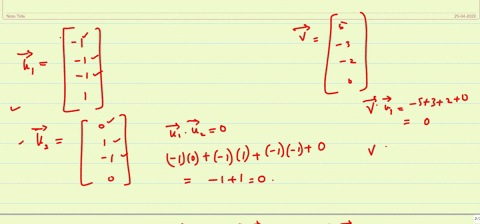 Note Title
25-04-2023
→u₁ = [-1 -1 -1 1]
→v = [5 -3 -2 0]
→v · →u₁ = -5+3+2+0
= 0
→u₂ = [0 1 -1 0]
→u₁ · →u₂ = 0
(-1)(0) + (-1)(1) + (-1)(-1) + 0
= -1+1 = 0.
v ·